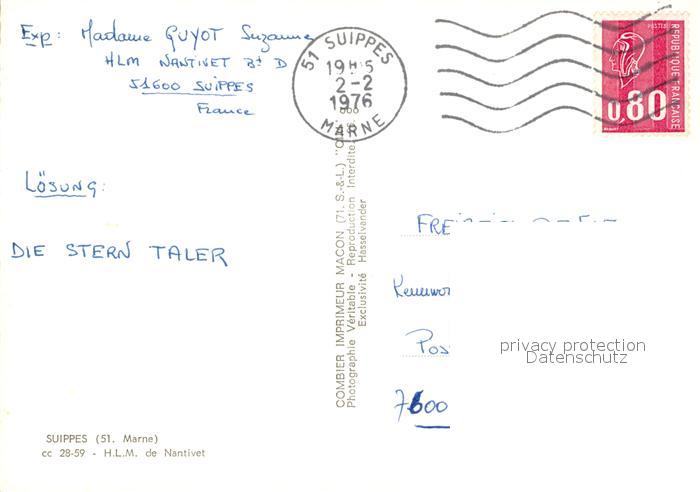 Exp: Madame GUYOT Suzanne
HLM NANTIVET Bt D
51600 SUIPPES
France
51 SUIPPES
19H·5
2-2
1976
MARNE
POSTES
REPUBLIQUE FRANÇAISE
0,80
LÖSUNG:
DIE STERN TALER
COMBIER IMPRIMEUR MACON (71. S.-&-L.)
Photographie Véritable - Reproduction Interdite
Exclusivité Hasselvander
FRE
Kennwor
Pos
7600
privacy protection
Datenschutz
SUIPPES (51. Marne)
cc 28-59 - H.L.M. de Nantivet